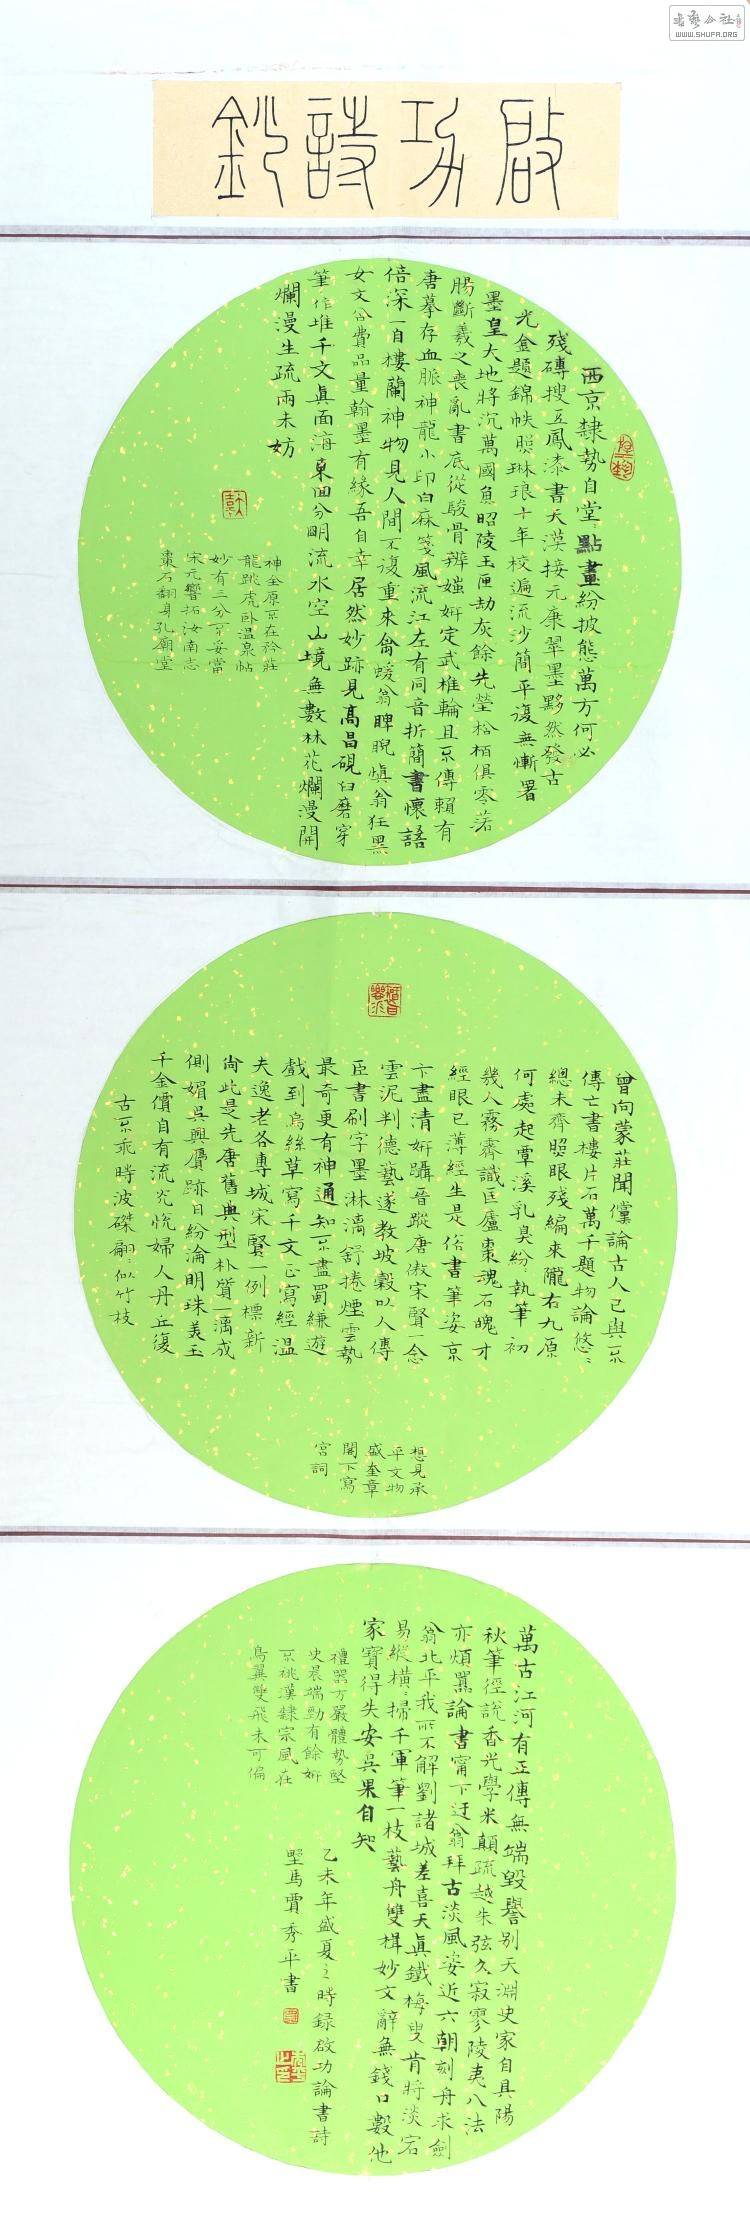 書藝公社
WWW.SHUFA.ORG
啟功詩鈔
西京隸勢自堂堂點畫紛披態萬方何必
殘磚搜五鳳漆書天漢接元康翠墨黟然發古
光金題錦帙照琳琅十年校遍流沙簡平復無慚署
墨皇大地將沉萬國魚昭陵玉匣劫灰餘先塋松柏俱零落
腸斷羲之喪亂書底從駿骨辨媸妍定武椎輪且不傳賴有
唐摹存血脈神龍小印白麻箋風流江左有同音折簡書懷語
倍深一自樓蘭神物見人間不復重來禽蝯翁睥睨慎翁狂黑
女文公費品量翰墨有緣吾自幸居然妙跡見高昌硯臼磨穿
筆作堆千文真面海東回分明流水空山境無數林花爛漫開
爛漫生疏兩未妨
神全原不在矜莊
龍跳虎臥溫泉帖
妙有三分不妥當
宋元響拓汝南志
棗石翻身孔廟堂
曾向蒙莊聞儻論古人已與不
傳亡書樓片石萬千題物論悠悠
總未齊照眼殘編來隴右九原
何處起覃溪乳臭紛紛執筆初
幾人霧霽識匡廬棗魂石魄才
經眼已薄經生是俗書筆姿京
卞盡清妍躡晉蹤唐傲宋賢一念
雲泥判德藝遂教坡穀以人傳
臣書刷字墨淋漓舒捲煙雲勢
最奇更有神通知不盡蜀縑遊
戲到烏絲草寫千文正寫經溫
夫逸老各專城宋賢一例標新
尚此是先唐舊典型朴質一漓成
側媚吳興贗跡日紛淪明珠美玉
千金價自有流光悅婦人丹丘復
古不乖時波磔翩翩似竹枝
想見承
平文物
盛奎章
閣下寫
宮詞
萬古江河有正傳無端毀譽別天淵史家自具陽
秋筆徑說香光學米顛疏越朱弦久寂寥陵夷八法
亦煩囂論書甯下迂翁拜古淡風姿近六朝刻舟求劍
翁北平我所不解劉諸城差喜天真鐵梅叟肯將淡宕
易縱橫橫掃千軍筆一枝藝舟雙楫妙文辭無錢口數他
家寶得失安吳果自知
禮器方嚴體勢堅
史晨端勁有餘妍
不祧漢隸宗風在
鳥翼雙飛未可偏
乙未年盛夏之時錄啟功論書詩
野馬賈秀平書